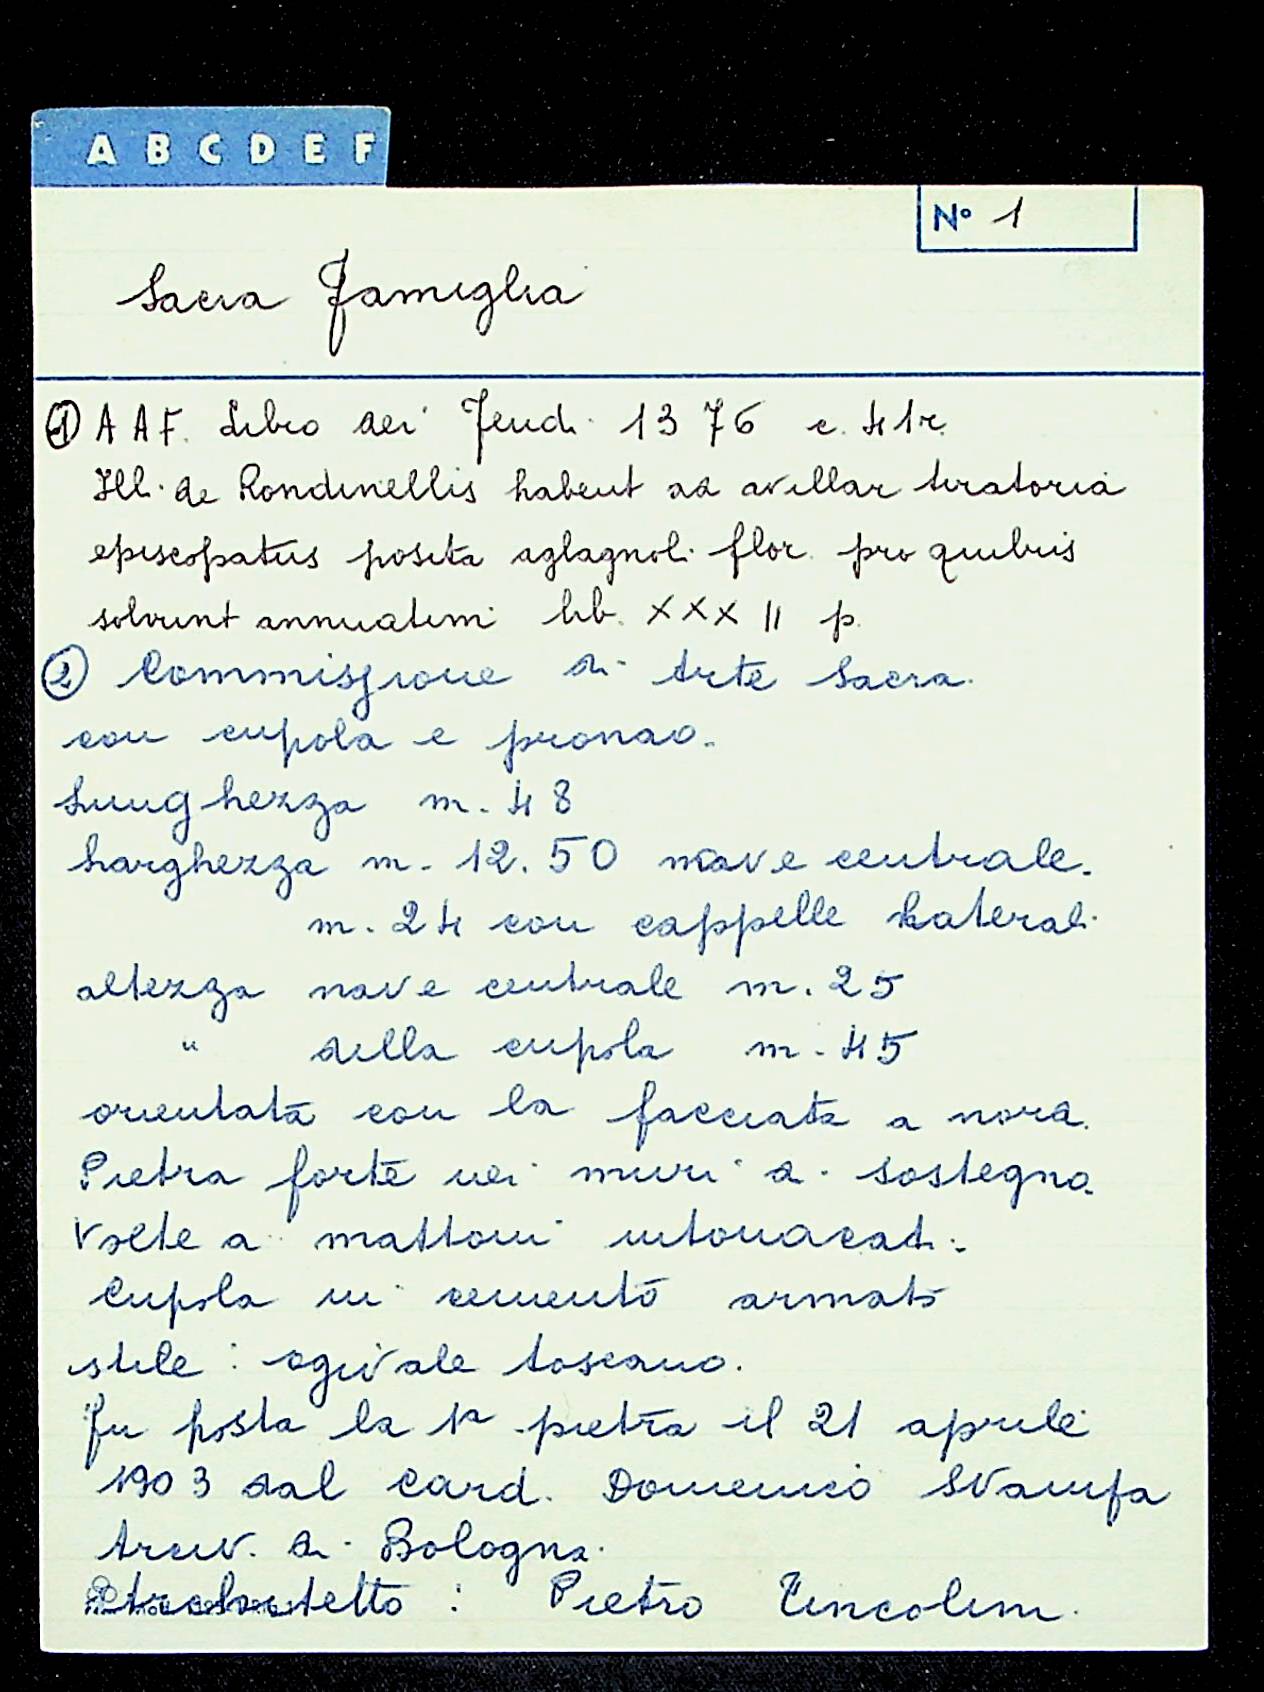 A B C D E F
N° 1
Sacra Famiglia
① A A F. Libro dei Feudi 1376 c. 41r.
Ill. de Rondinellis habent ad avillar tiratoria
episcopatus posita aglagnoli flor. pro quibus
solvunt annuatim lib. XXX II p.
② Commissione di Arte Sacra.
con cupola e pronao.
Lunghezza m. 48
larghezza m. 12.50 nave centrale.
m. 24 con cappelle laterali
altezza nave centrale m. 25
" della cupola m. 45
orientata con la facciata a nord.
Pietra forte nei muri di sostegno.
Volte a mattoni intonacati.
Cupola in cemento armato
stile : ogivale toscano.
fu posta la 1a pietra il 21 aprile
1903 dal card. Domenico Svampa
Arciv. di Bologna.
Architetto : Pietro